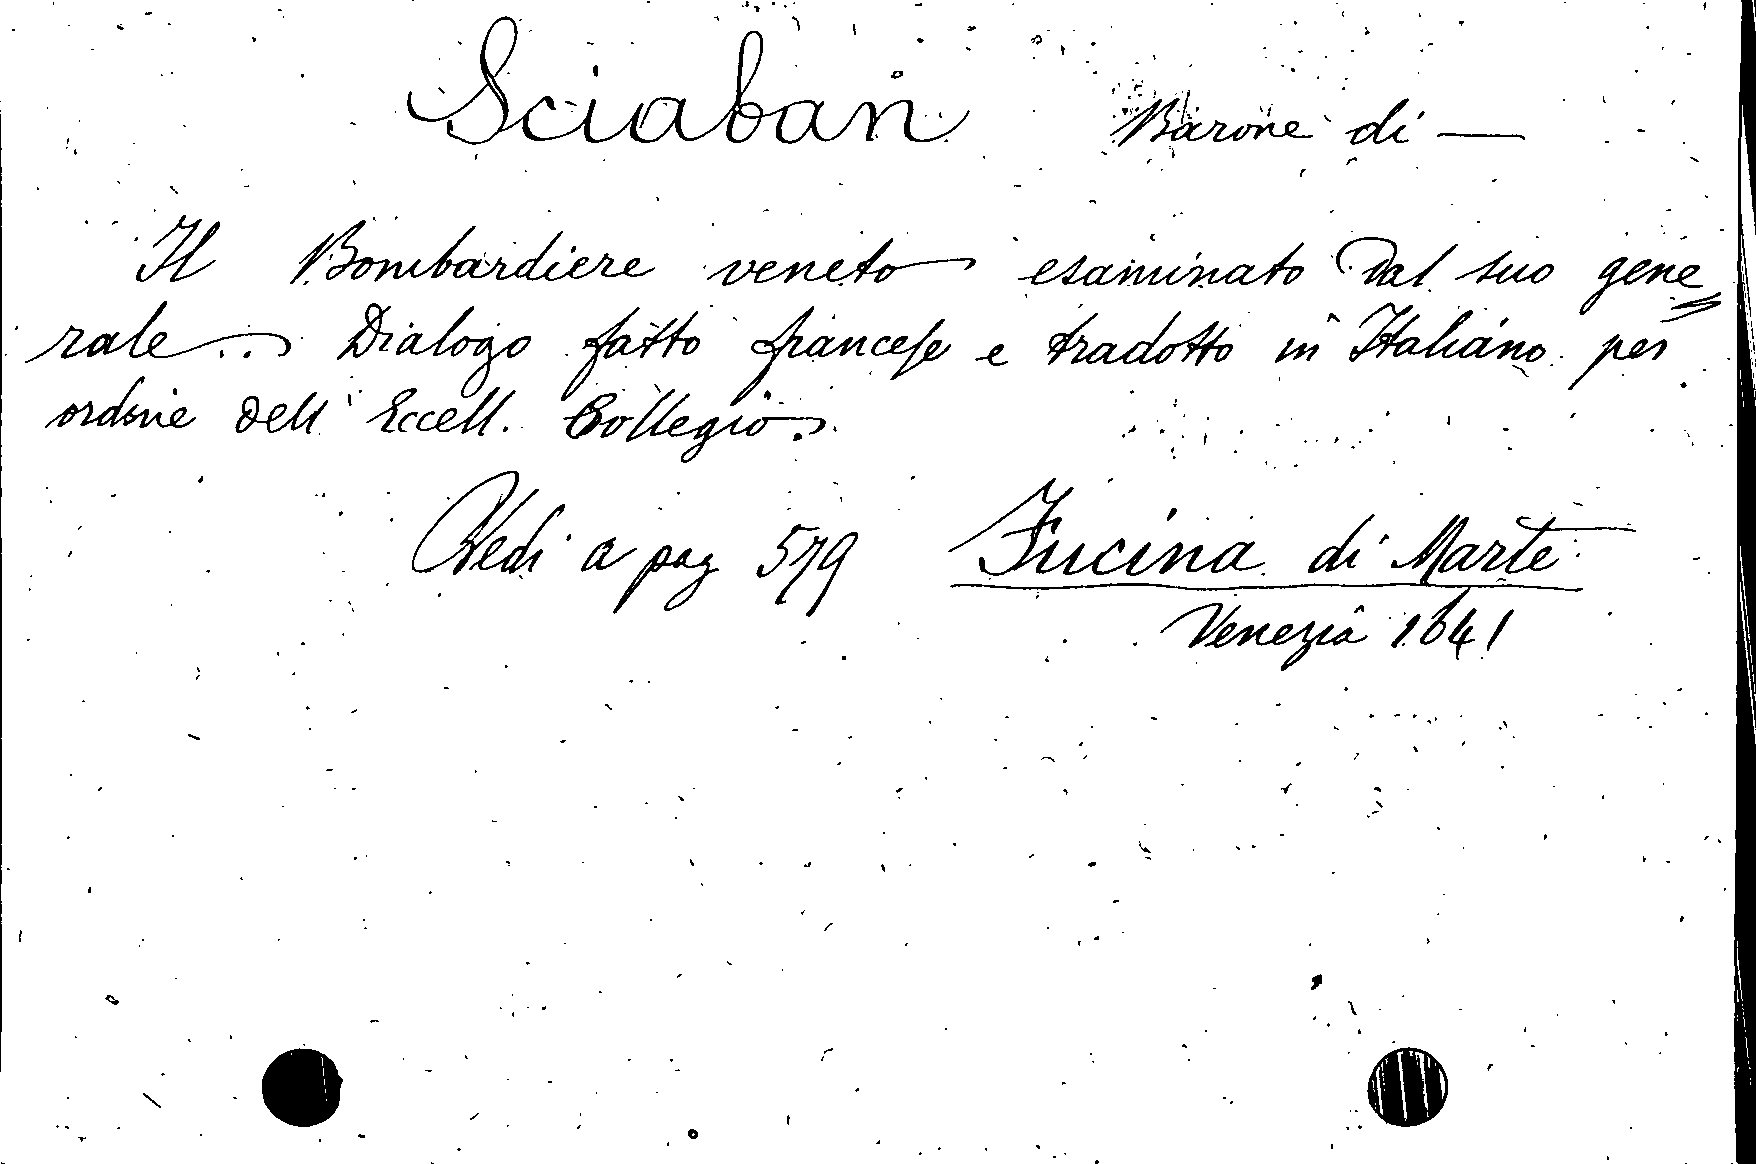 Sciaban Barone di —
Il Bombardiere veneto esaminato dal suo gene=
rale... Dialogo fatto francese e tradotto in Italiano per
ordine dell' Eccell. Collegio.
Vedi a pag 579 Fucina di Marte
Venezia 1641